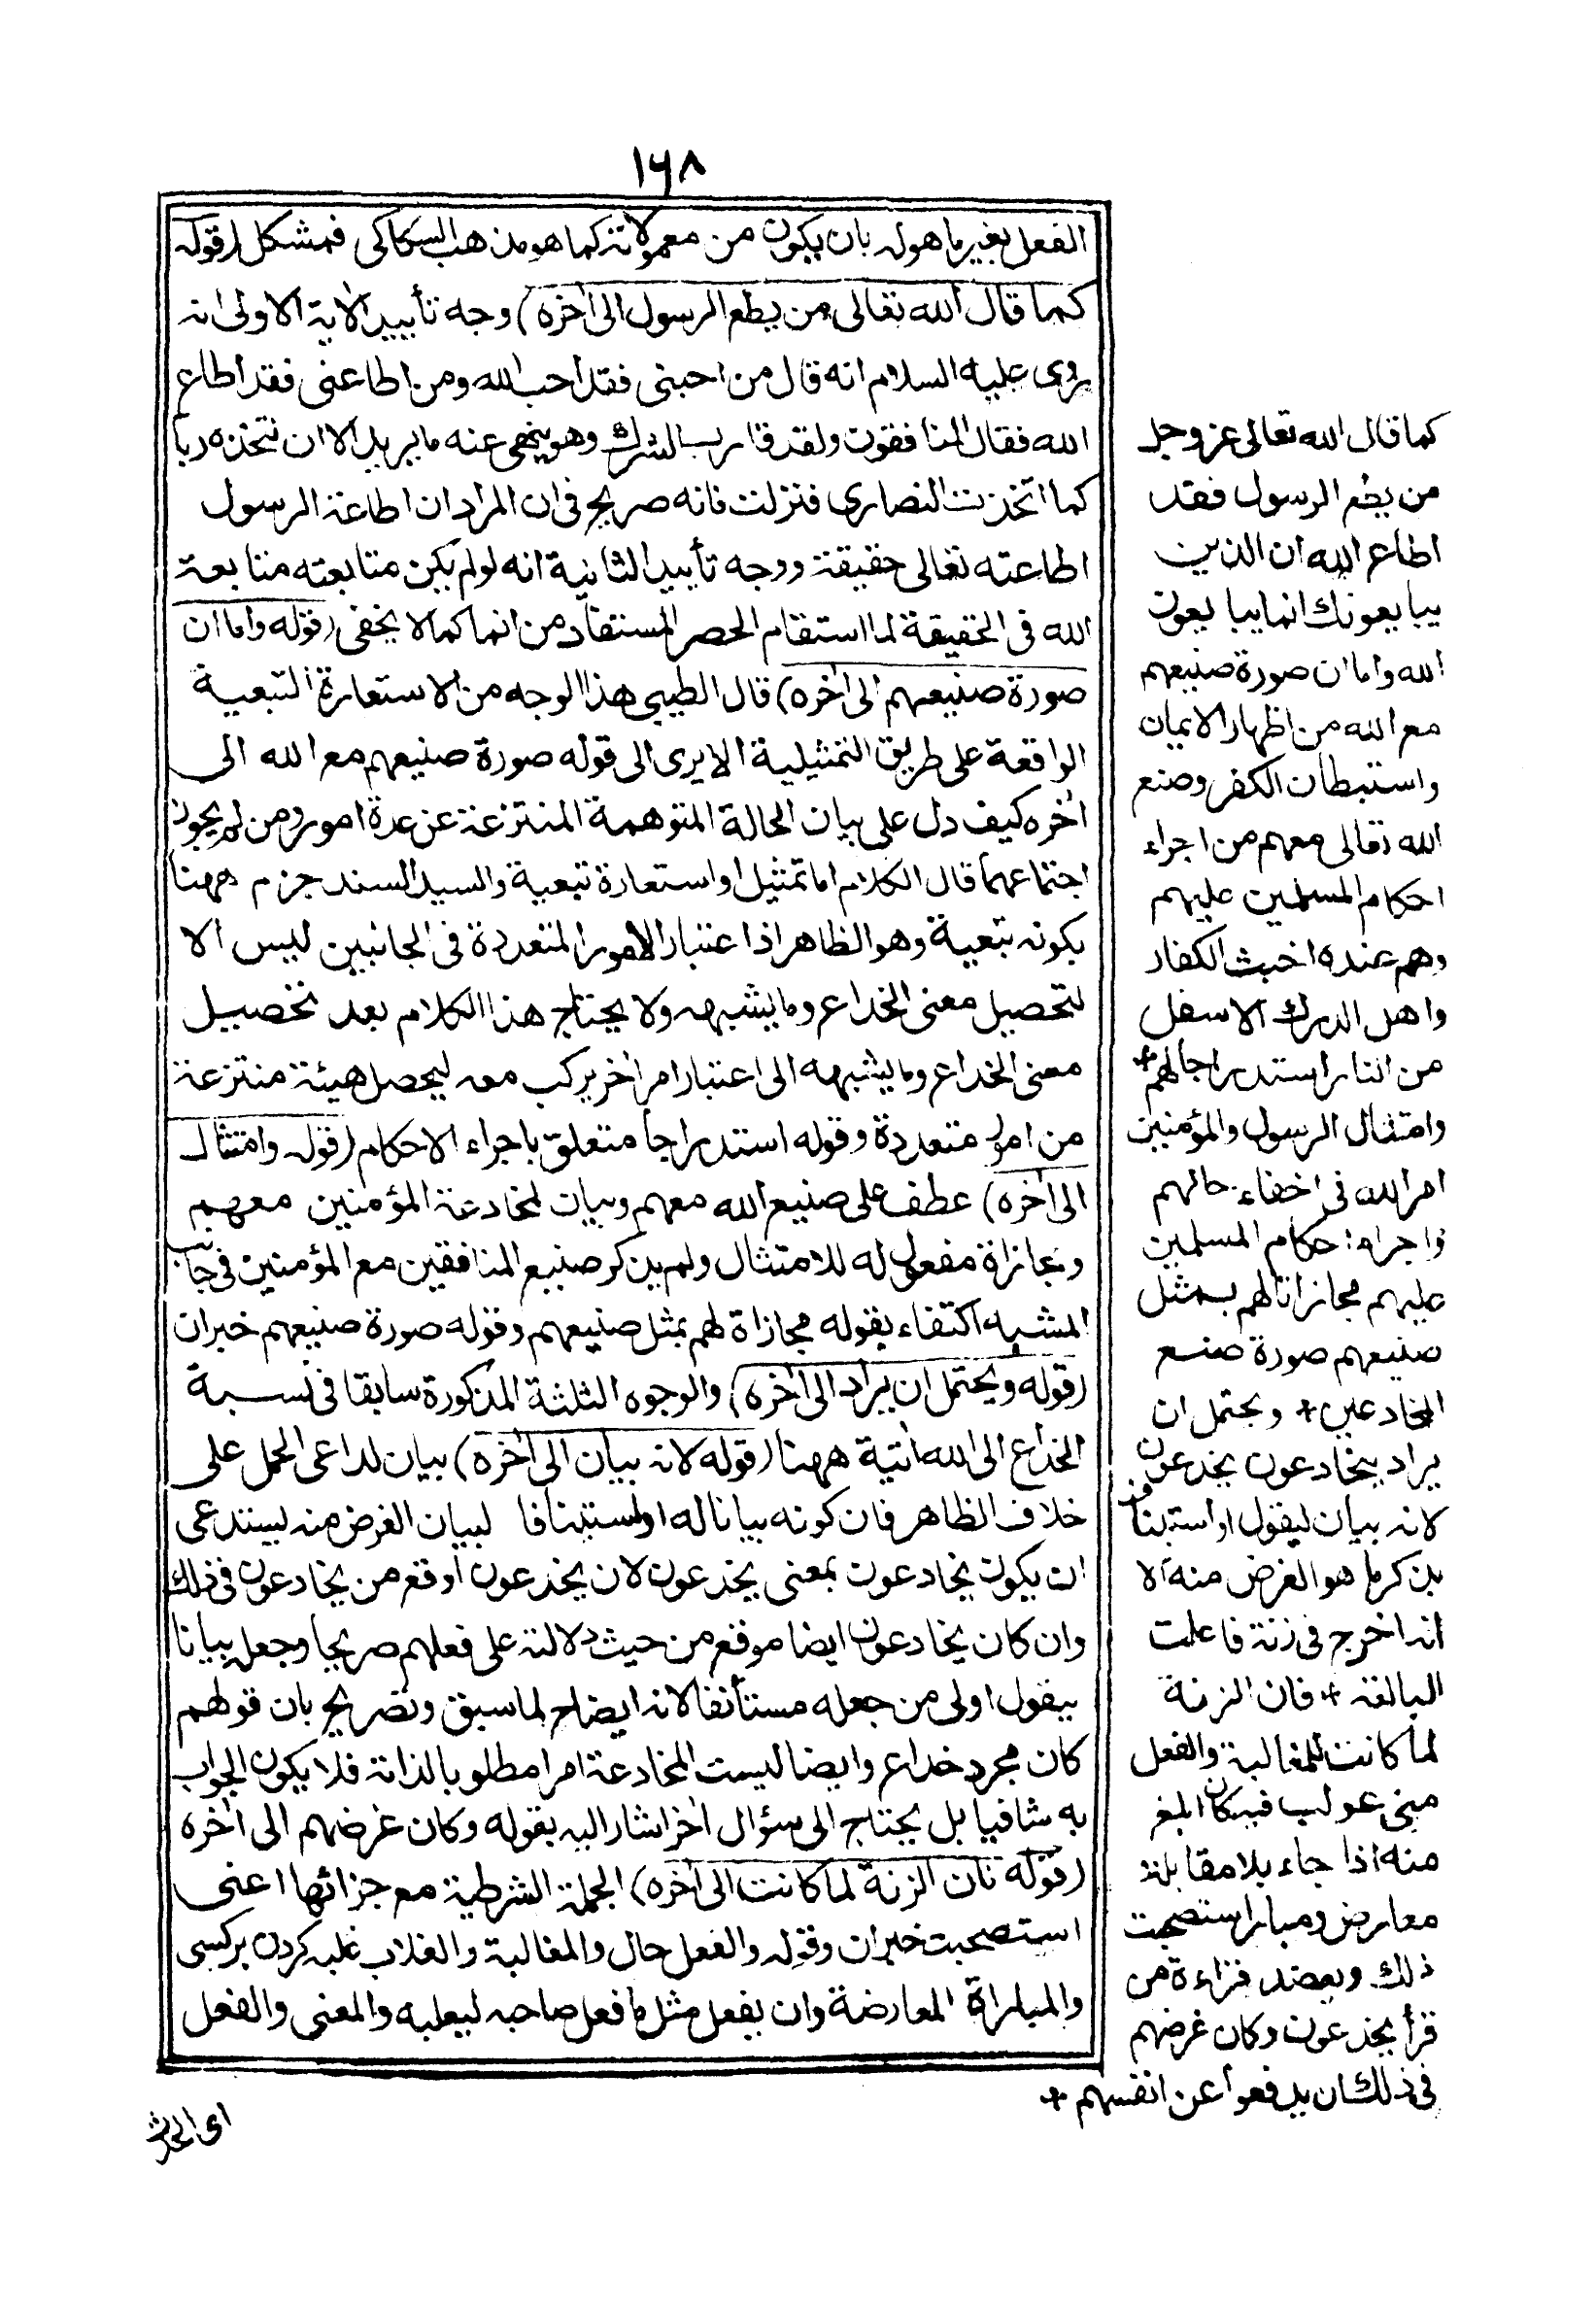 ١٦٨
الفعل بغير ما هوله بان يكون من معمولاته كما هو مذهب السكاكى فمشكل (قوله
كما قال الله تعالى من يطع الرسول الى آخره) وجه تأييد الآية الاولى انه
روى عليه السلام انه قال من احبنى فقد احب الله ومن اطاعنى فقد اطاع
الله فقال المنافقون ولقد قارب الشرك وهو ينهى عنه ما يريد الا ان نتخذه ربا
كما اتخذت النصارى فنزلت فانه صريح فى ان المراد ان اطاعة الرسول
اطاعته تعالى حقيقة ووجه تأييد الثانية انه لو لم يكن متابعته متابعة
الله فى الحقيقة لما استقام الحصر المستفاد من انما كما لا يخفى (قوله واما ان
صورة صنيعهم الى آخره) قال الطيبى هذا الوجه من الاستعارة التبعية
الواقعة على طريق التمثيلية الا يرى الى قوله صورة صنيعهم مع الله الى
آخره كيف دل على بيان الحالة المتوهمة المنتزعة عن عدة امور ومن لم يجوز
اجتماعهما قال الكلام اما تمثيل او استعارة تبعية والسيد السند جزم ههنا
بكونه تبعية وهو الظاهر اذا عتبار الامور المتعددة فى الجانبين ليس الا
لتحصيل معنى الخداع وما يشبهه ولا يحتاج هذا الكلام بعد تحصيل
معنى الخداع وما يشبهه الى اعتبار امر آخر يركب معه ليحصل هيئة منتزعة
من امور متعددة وقوله استدراجا متعلق باجراء الاحكام (قوله وامتثال
الى آخره) عطف على صنيع الله معهم وبيان لمخادعة المؤمنين معهم
ومجازاة مفعول له للامتثال ولم يذكر صنيع المنافقين مع المؤمنين فى جانب
المشبه اكتفاء بقوله مجازاة لهم بمثل صنيعهم وقوله صورة صنيعهم خبر ان
(قوله ويحتمل ان يراد الى آخره) والوجوه الثلثة المذكورة سابقا فى نسبة
الخداع الى الله اٰتية ههنا (قوله لانه بيان الى آخره) بيان لداعى الحمل على
خلاف الظاهر فان كونه بيانا له او استينافا لبيان الغرض منه يستدعى
ان يكون يخادعون بمعنى يخدعون لان يخدعون اوقع من يخادعون فى ذلك
وان كان يخادعون ايضا موقع من حيث دلالته على فعلهم صريحا وجعله بيانا
بيقول اولى من جعله مستأنفا لانه ايضاح لما سبق وتصريح بان قولهم
كان مجرد خداع وايضا ليست المخادعة امرا مطلوبا لذاته فلا يكون الجواب
به شافيا بل يحتاج الى سؤال آخر اشار اليه بقوله وكان غرضهم الى آخره
(قوله فان الزنة لما كانت الى آخره) الجملة الشرطية مع جزائها اعنى
استصحبت خبر ان وقوله والفعل حال والمغالبة والغلاب غلبه كردن بركسى
والمباراة المعارضة وان يفعل مثل ما فعل صاحبه ليغلبه والمعنى والفعل
اى الحدث
كما قال الله تعالى عز وجل
من يطع الرسول فقد
اطاع الله ان الذين
يبايعونك انما يبايعون
الله واما ان صورة صنيعهم
مع الله من اظهار الايمان
واستبطان الكفر وصنع
الله تعالى معهم من اجراء
احكام المسلمين عليهم
وهم عنده اخبث الكفار
واهل الدرك الاسفل
من النار استدراجا لهم +
وامتثال الرسول والمؤمنين
امر الله فى اخفاء حالهم
واجراء احكام المسلمين
عليهم مجازاتا لهم بمثل
صنيعهم صورة صنع
المخادعين + ويحتمل ان
يراد بيخادعون يخدعون
لانه بيان ليقول او استينافٌ
بذكر ما هو الغرض منه الا
انه اخرج فى زنة فاعلت
البالغة + فان الزنة
لما كانت للمغالبة والفعل
متى غولب فيه كان ابلغ
منه اذا جاء بلا مقابلة
معارض ومبار استصحبت
ذلك ويعضد قراءة من
قرأ يخدعون وكان غرضهم
فى ذلك ان يدفعوا عن انفسهم +